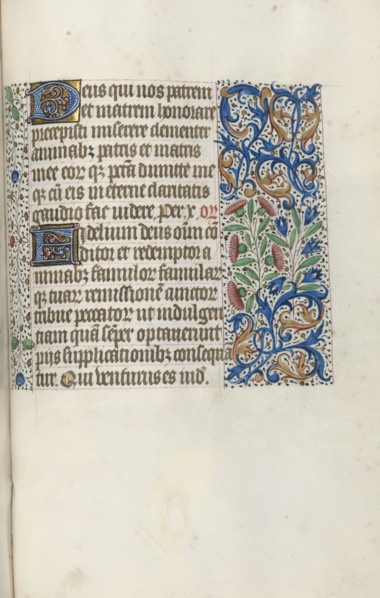 Deus qui nos patrem
et matrem honorare
precepisti miserere clementer
animabꝫ patris et matris
mee eorqꝫ pctā dimitte me
qꝫ cū eis in eterne claritatis
gaudio fac videre per x or
Fidelium deus oīm cō
ditor et redemptor a
nimabꝫ famulor famular
qꝫ tuar remissionē cunctor
tribue peccator ut indulgen
tiam quā semper optauerunt
pijs supplicationibꝫ consequā
tur. Qui venturus es iud.